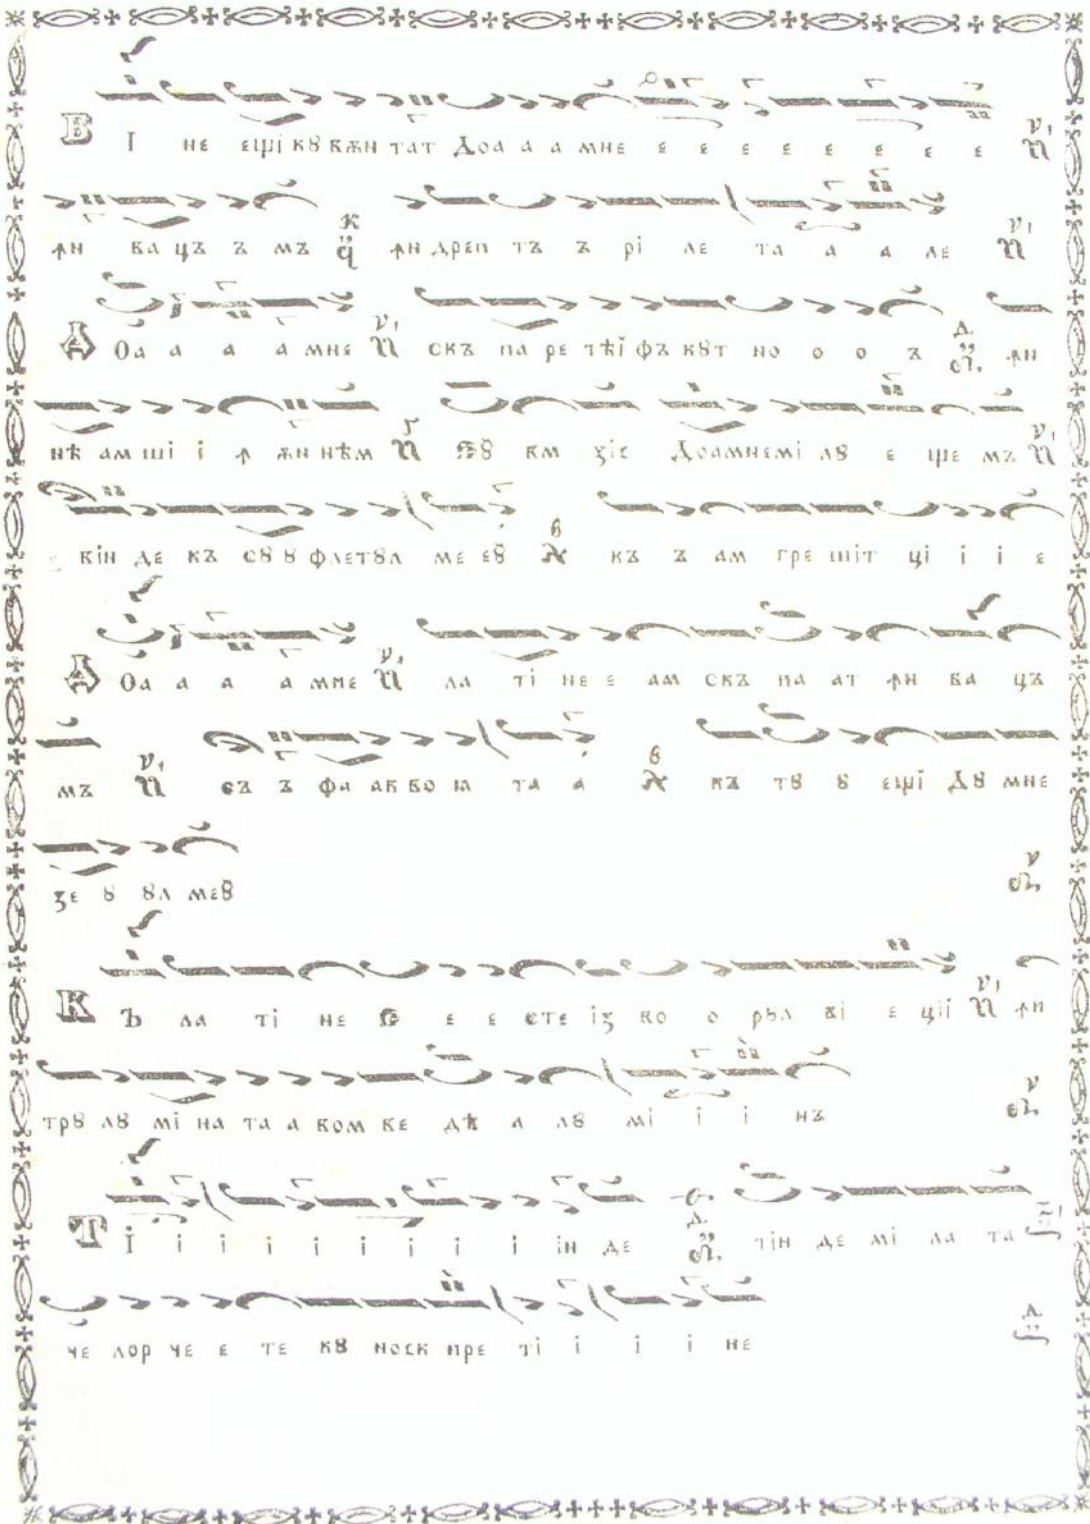 Бі не ещі кꙋ вѫн тат Доа а а мне є є є є є є є є
ꙟн ва цъ ъ мъ ꙟн дреп тъ ъ рі ле та а а ле
Доа а а а мне скъ па ре тѣї фъ кꙋт но о о ъ ꙟн
нѣ ам ші і ꙟ жн нѣм зіс Доамне мі лꙋ е ще мъ
він де къ сꙋ ꙋ флетꙋл ме еꙋ къ ъ ам гре шіт ці і і є
Доа а а а мне ла ті не є ам скъ па ат ꙟн ва цъ
мъ съ ъ фа ак во ꙗ та а къ тꙋ ꙋ ещі Дꙋ мне
зе ꙋ ꙋл меꙋ
Къ ла ті не є є єсте із во о рѣл ві є ції ꙟн
трꙋ лꙋ мі на та а вом ве дѣ а лꙋ мі і і нъ
Ті і і і і і і і і ін де тін де мі ла та
че лор че є те кꙋ носк пре ті і і і не